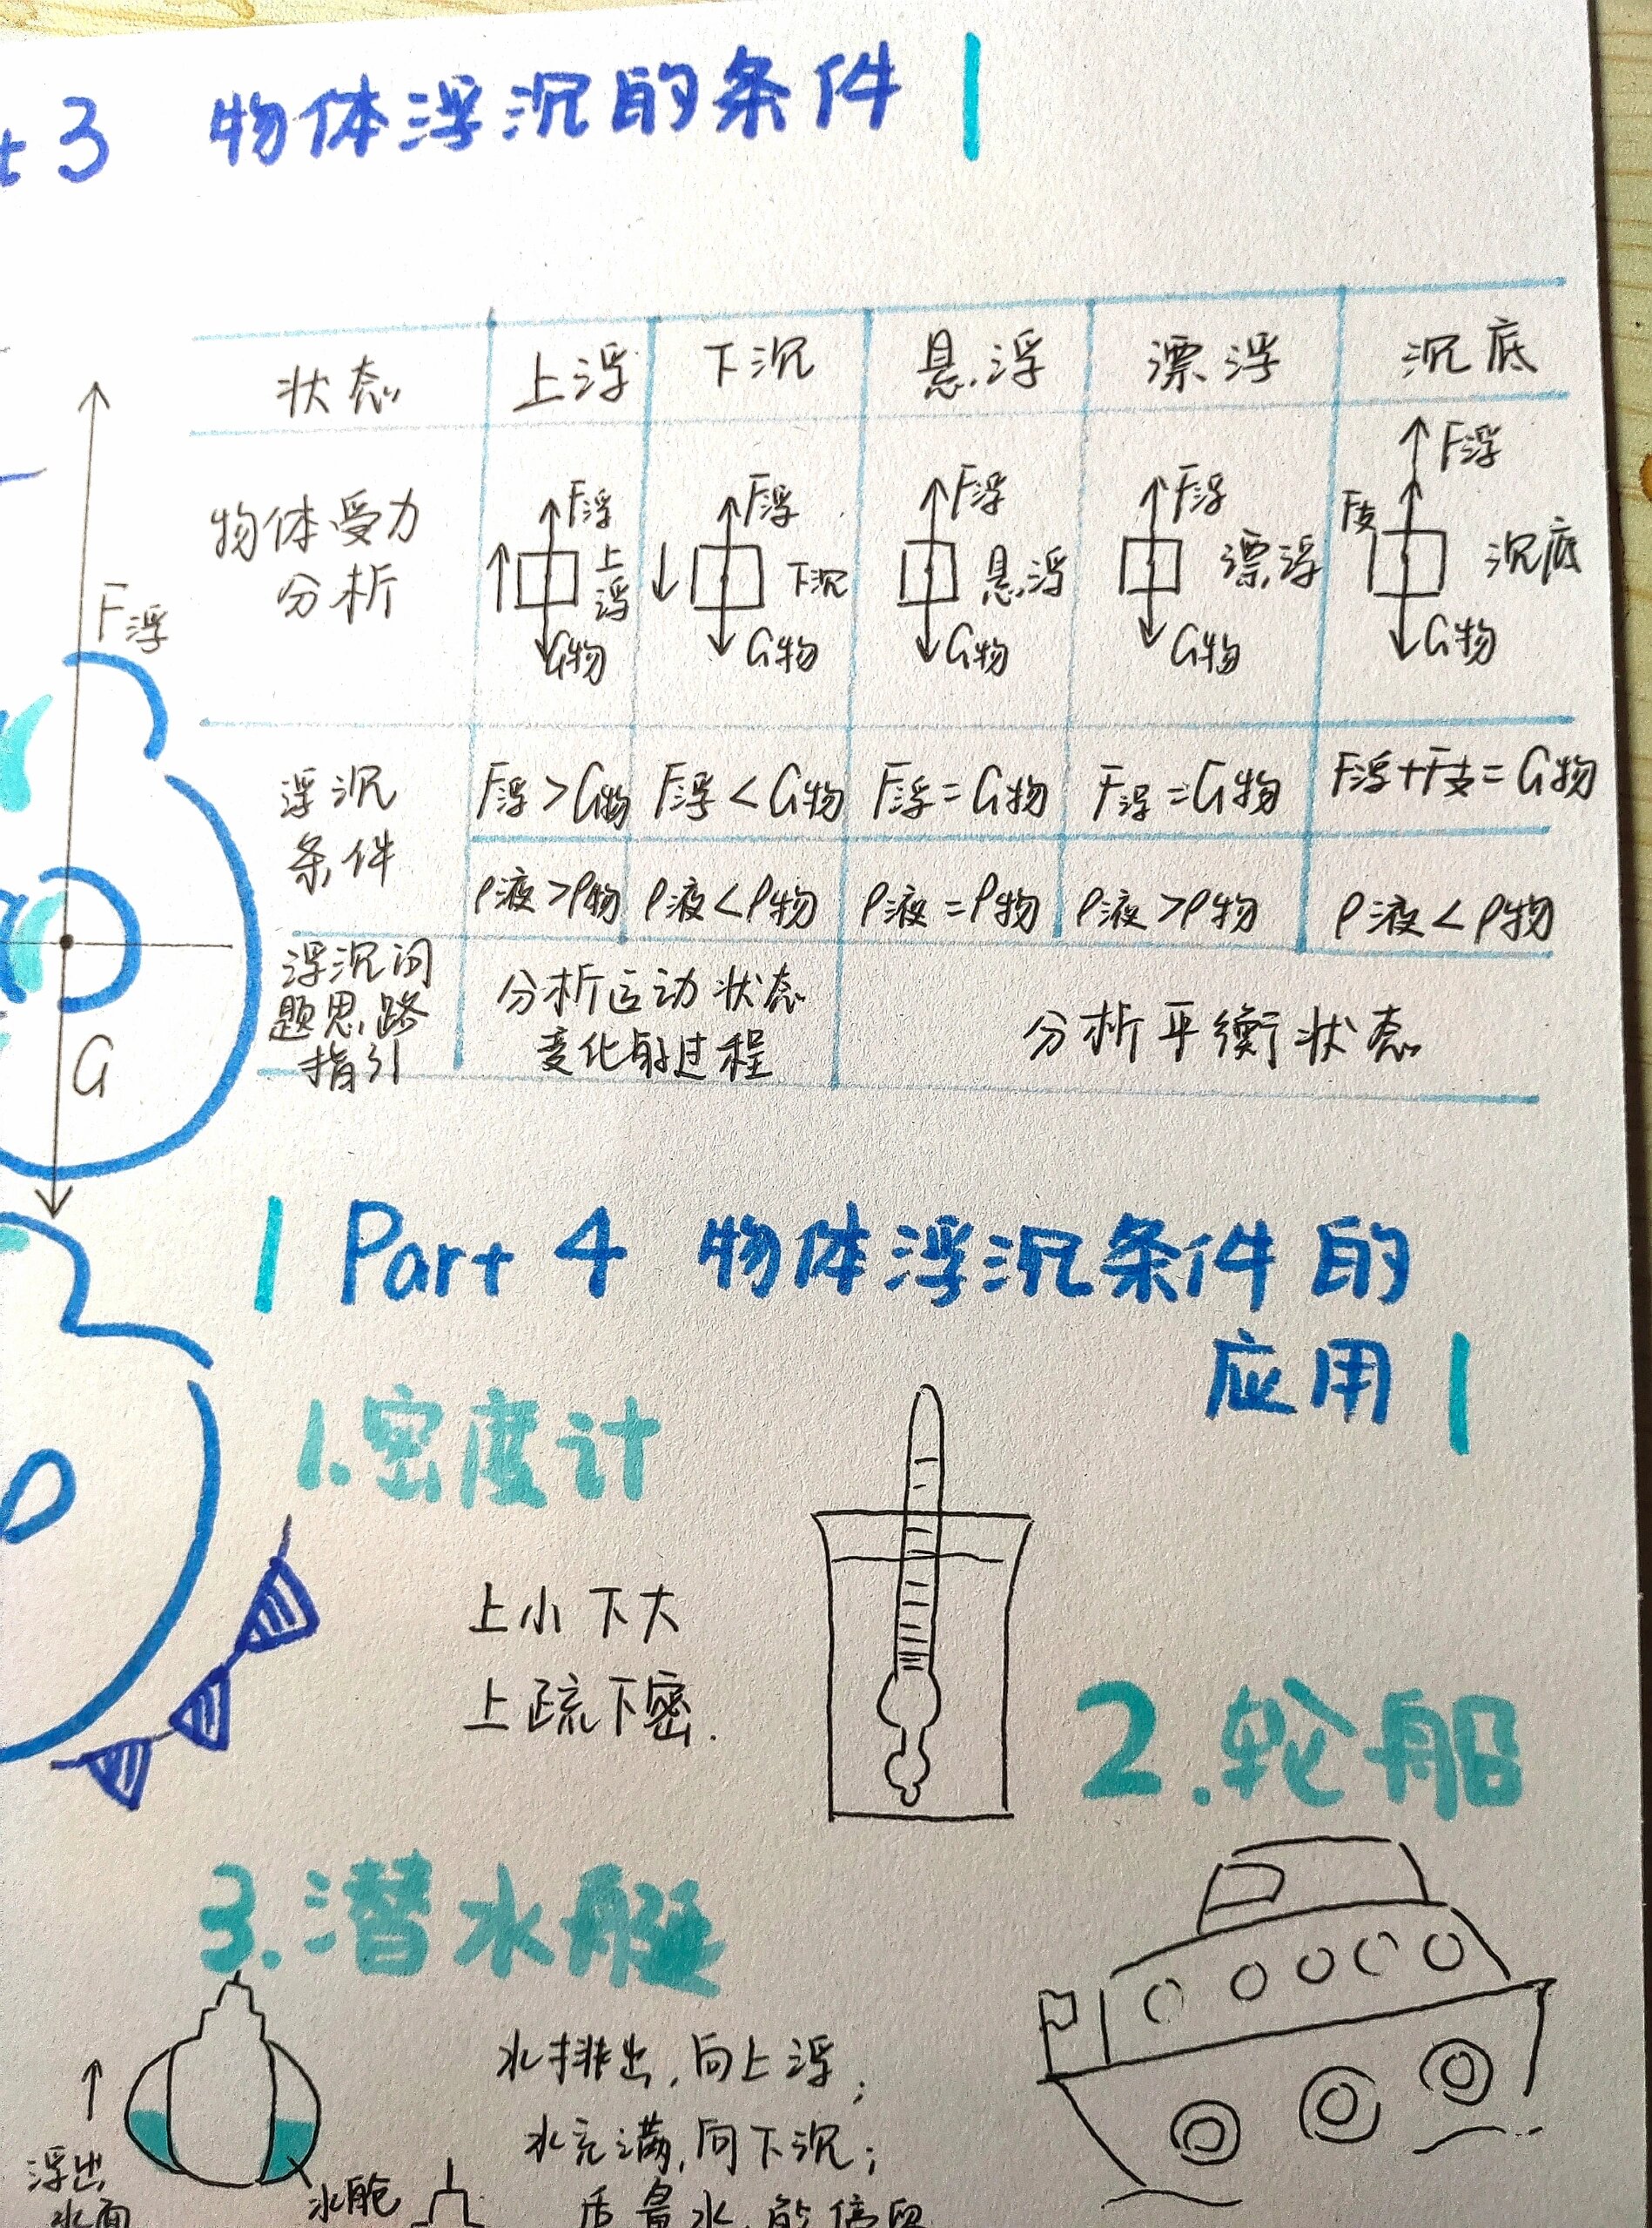 t 3 物体浮沉的条件
状态 上浮 下沉 悬浮 漂浮 沉底
物体受力
分析
F浮 上浮 G物
F浮 下沉 G物
F浮 悬浮 G物
F浮 漂浮 G物
F浮 F支 沉底 G物
F浮
G
浮沉
条件
F浮>G物 F浮<G物 F浮=G物 F浮=G物 F浮+F支=G物
ρ液>ρ物 ρ液<ρ物 ρ液=ρ物 ρ液>ρ物 ρ液<ρ物
浮沉问
题思路
指引
分析运动状态
变化的过程
分析平衡状态
Part 4 物体浮沉条件的
应用
1.密度计
上小下大
上疏下密.
2.轮船
3.潜水艇
水排出,向上浮;
水充满,向下沉;
浮出
水面
水舱
量水,能停留